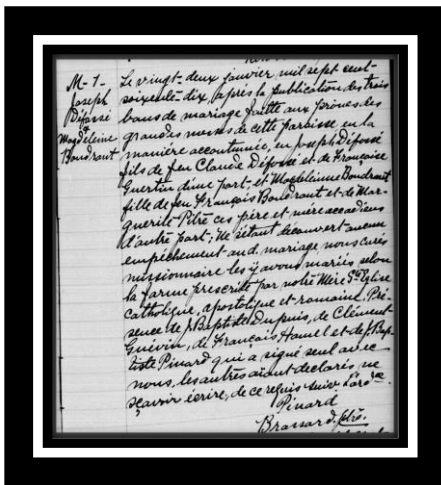 M-1-
Joseph
Défossé
&
Magdeleine
Boudraut
Le vingt-deux janvier mil sept cent-
soixente-dix, après la publication des trois
bans de mariage faitte aux prônes des
grandes messes de cette paroisse, en la
manière accoutumée, en joseph Défossé
fils de feu Claude Défossé et de Françoise
Guertin d'une part- et Magdeleinne Boudraut
fille de feu François Boudraut et de Mar-
guerite Pitre ces père et mère accadiens
d'autre part; Ne s'étant découvert aucun
empêchement aud. mariage nous curés
missionnaire les y avons mariés selon
la forme prescrite par notre Mère Ste Eglise
catholique, apostolique et romaine. Pré-
sence de J. Baptiste Dupuis, de Clément
Guévin, de François Hamel et de J. Bap-
tiste Pinard qui a signé seul avec
nous, les autres aiant declarés ne
sçavoir écrire, de ce requis suivt l'ordce
Pinard
Brassard, ptre.